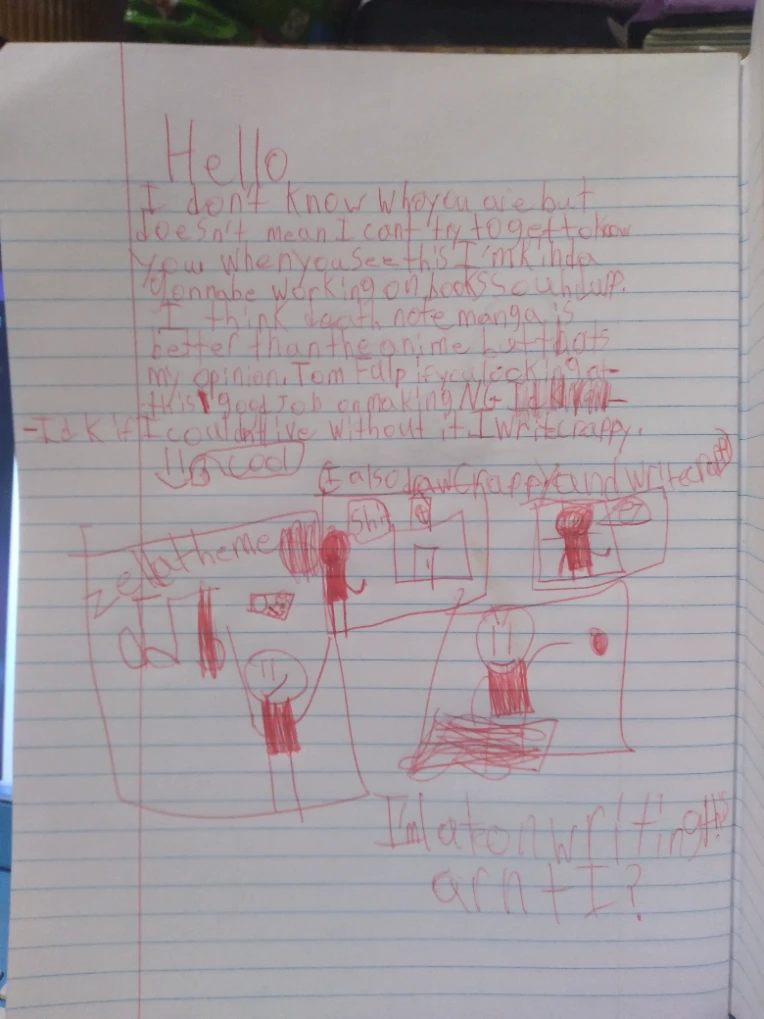 Hello
I don't know who you are but
doesn't mean I cant try to get to know
you when you see this I'm kinda
gonna be working on books so uhd up.
I think death note manga is
better than the anime but thats
my opinion. Tom Fulp if you looking at
this good Job on making NG
- Idk if I couldn't live without it I write crappy.
cool
I also draw crappy and write crappy
Shit
the me
I'm late on writing this
arnt I?